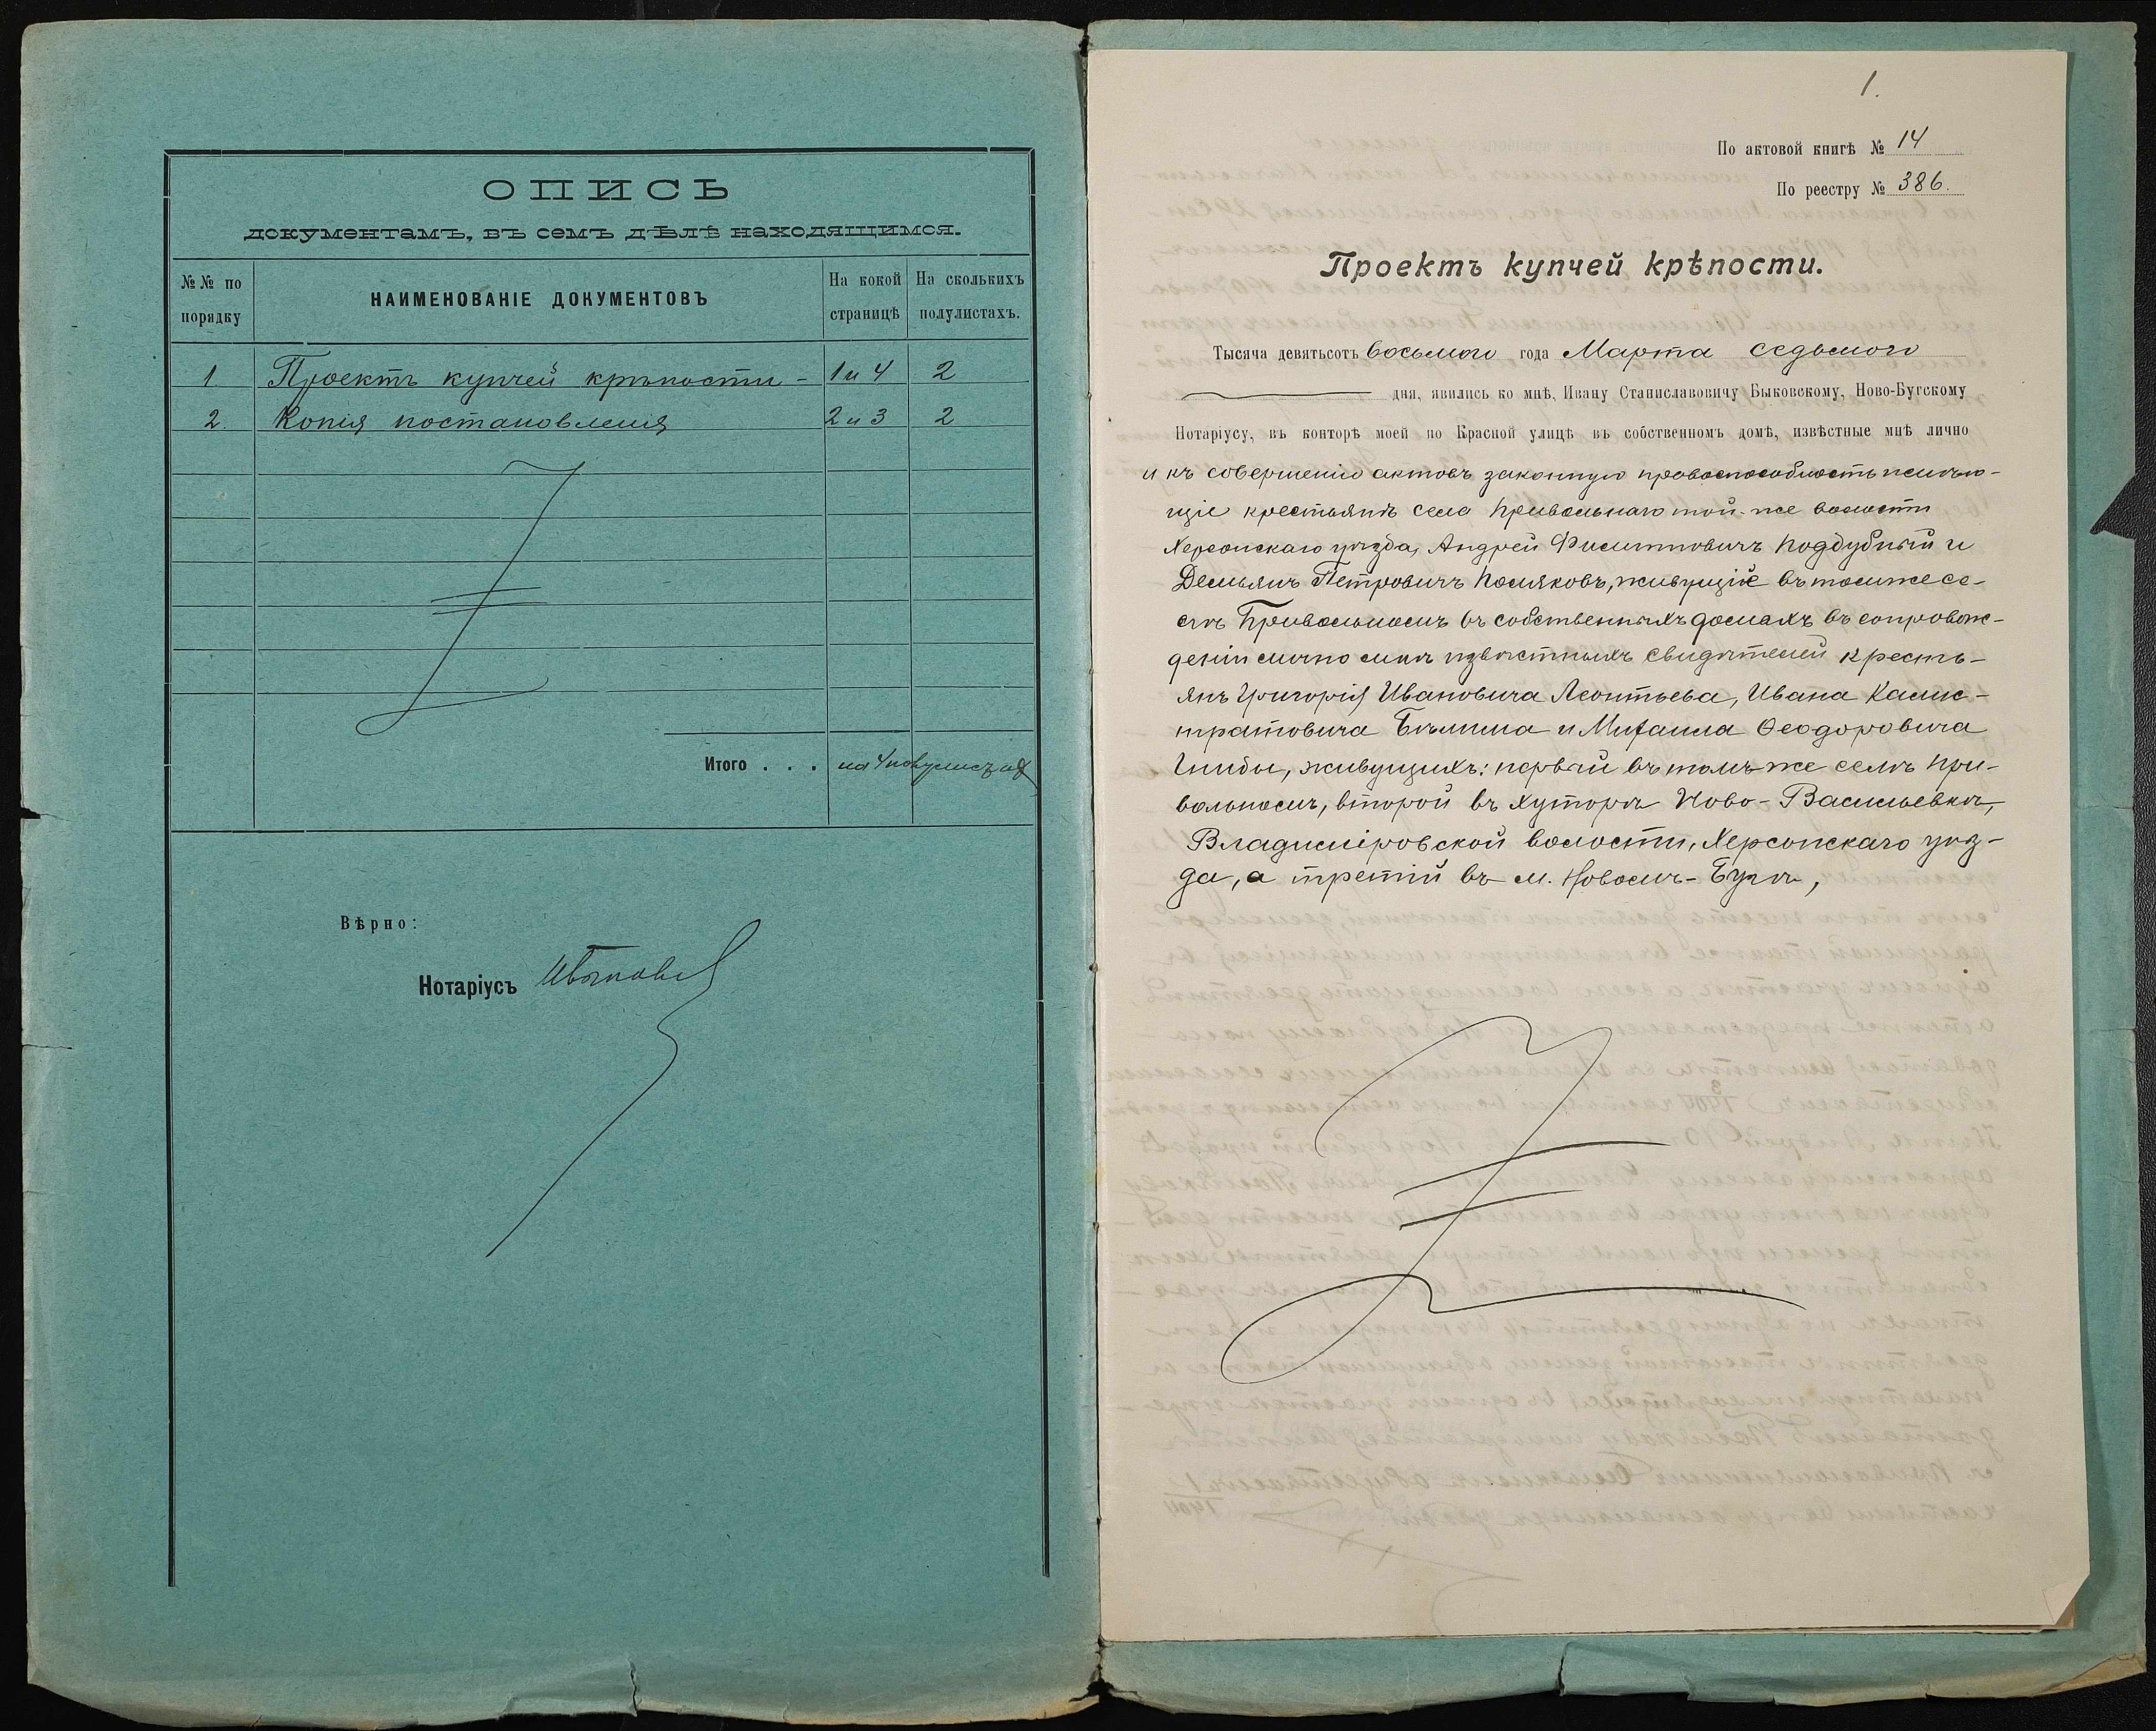 ОПИСЬ
документамъ, въ семъ дѣлѣ находящимся.
№№ по порядку
НАИМЕНОВАНІЕ ДОКУМЕНТОВЪ
На какой страницѣ
На сколькихъ полулистахъ.
1 Проектъ купчей крѣпости - 1 и 4 2
2. Копія постановленія 2 и 3 2
Итого . . . на 4 полулистахъ
Вѣрно:
Нотаріусъ
1.
По актовой книгѣ № 14
По реестру № 386.
Проектъ купчей крѣпости.
Тысяча девятьсотъ восьмого года Марта седьмого
дня, явились ко мнѣ, Ивану Станиславовичу Быковскому, Ново-Бугскому
Нотаріусу, въ конторѣ моей по Красной улицѣ въ собственномъ домѣ, извѣстные мнѣ лично
и къ совершенію актовъ законную правоспособность имѣю-
щіе крестьянѣ села Привольнаго той-же волости
Херсонскаго уѣзда, Андрей Филипповичъ Поддубный и
Демьянъ Петровичъ Поляковъ, живущіе въ томъ же се-
лѣ Привольномъ въ собственныхъ домахъ въ сопровож-
деніи лично мнѣ извѣстныхъ свидѣтелей кресть-
янъ Григорія Ивановича Леонтьева, Ивана Калис-
тратовича Бѣлима и Михаила Ѳеодоровича
живущихъ: первый въ томъ же селѣ При-
вольномъ, второй въ хуторѣ Ново-Васильевкѣ,
Владиміровской волости, Херсонскаго уѣз-
да, а третій въ м. Новомъ-Бугѣ,